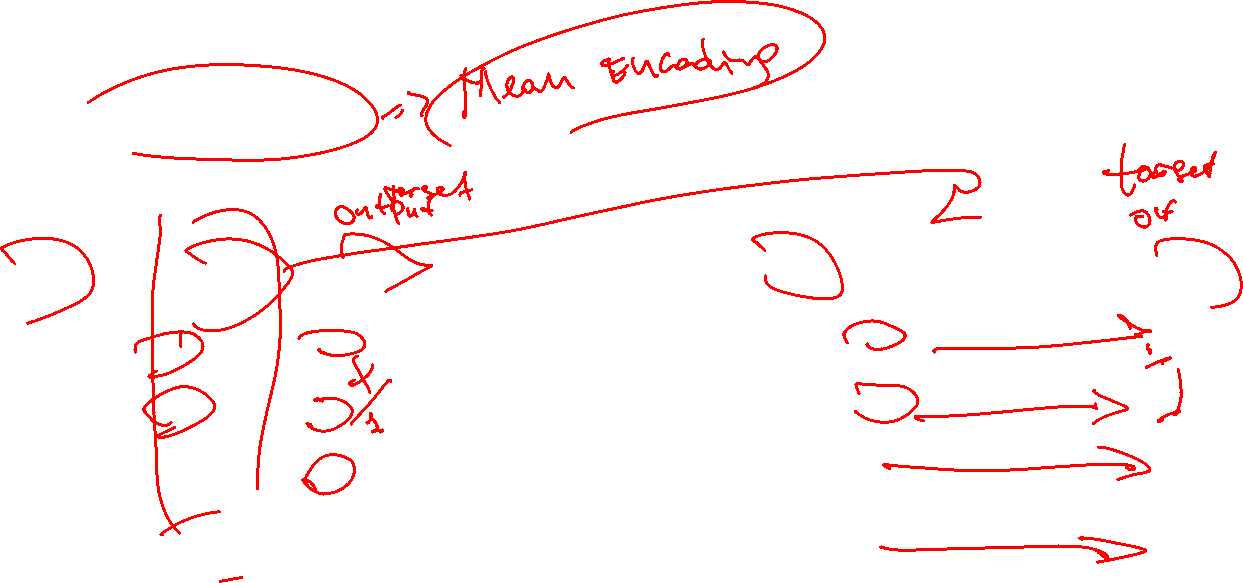 => Mean Encoding
target
output
target
or
1